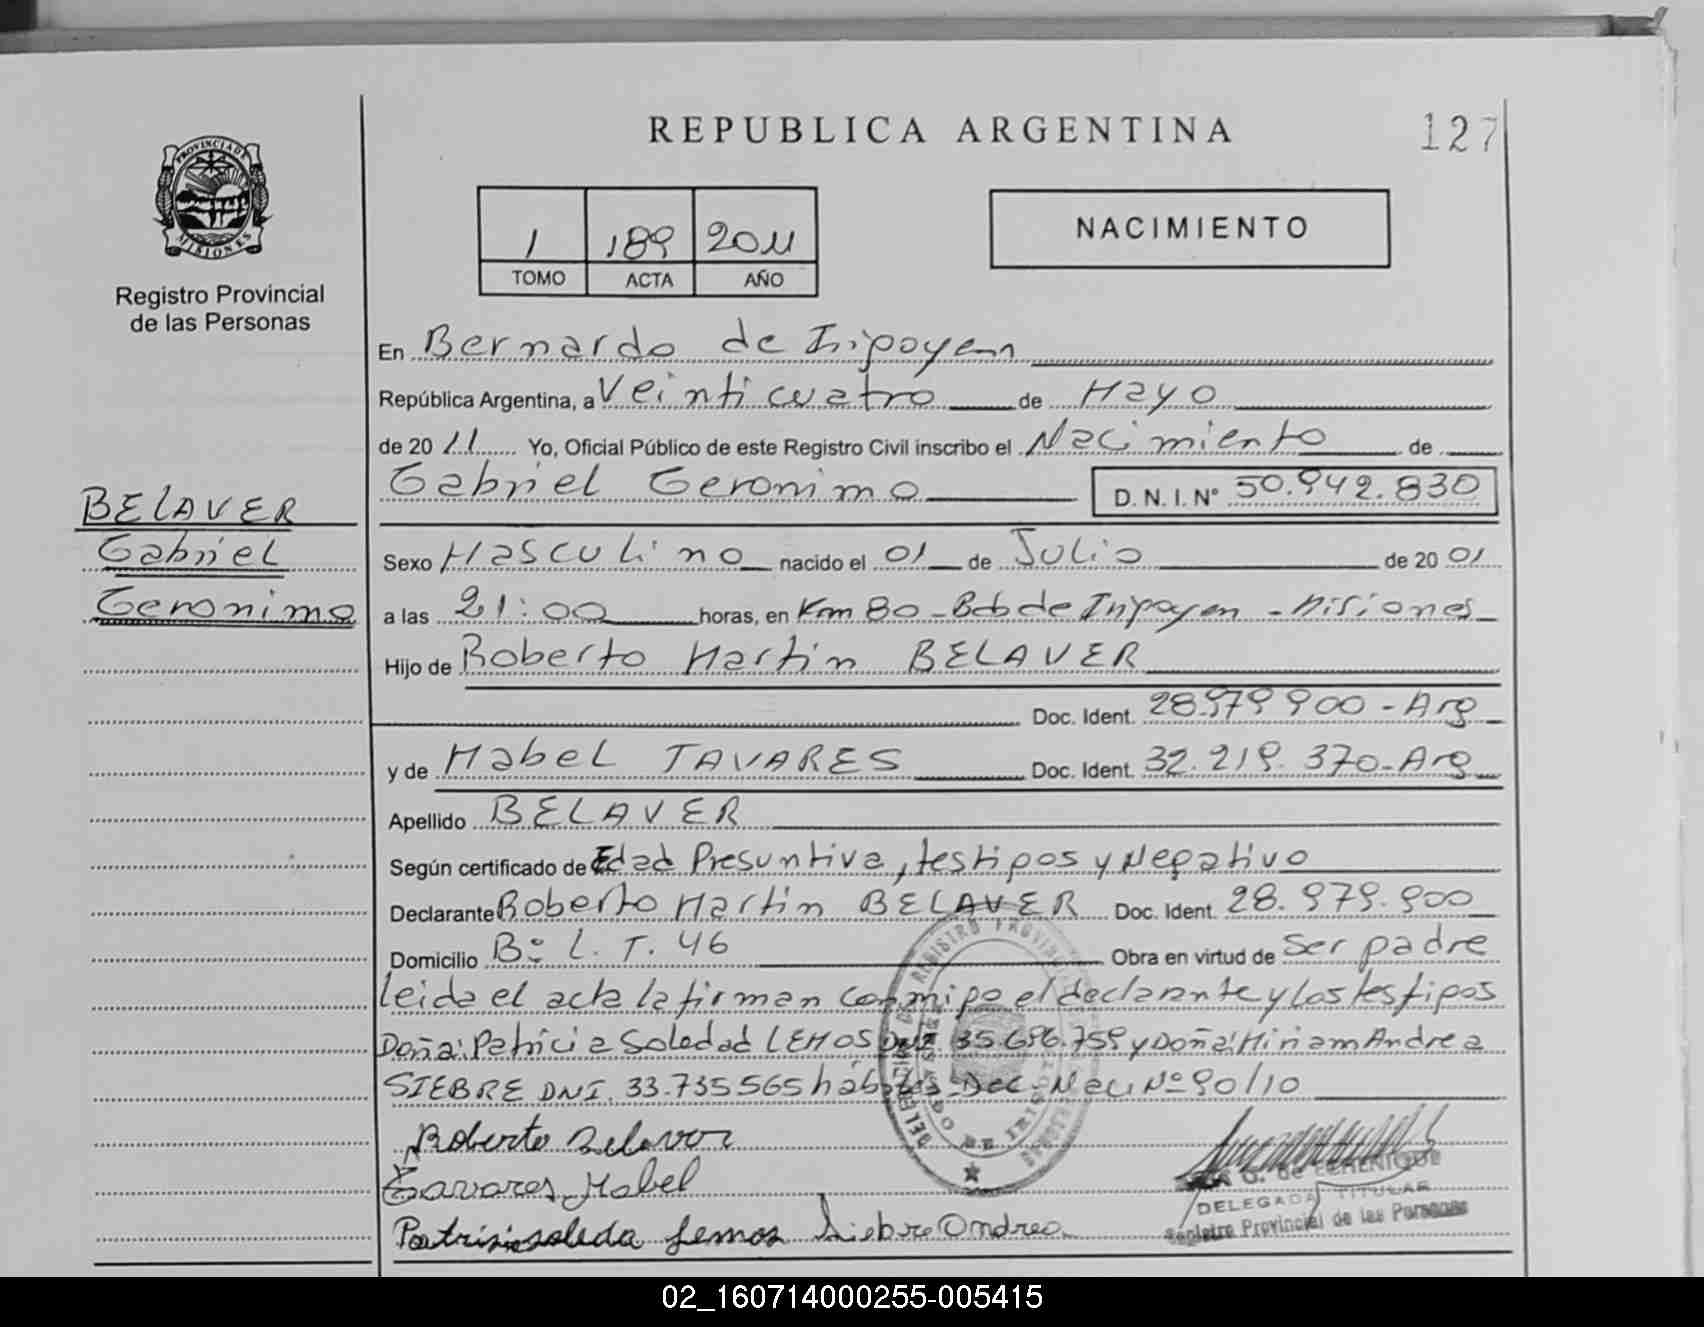 REPUBLICA ARGENTINA
127
PROVINCIA DE
MISIONES
Registro Provincial
de las Personas
1 189 2011
TOMO ACTA AÑO
NACIMIENTO
En Bernardo de Irigoyen
República Argentina, a Veinticuatro de Mayo
de 20 11 Yo, Oficial Público de este Registro Civil inscribo el Nacimiento de
Gabriel Geronimo D.N.I.Nº 50.942.830
BELAVER
Gabriel
Geronimo
Sexo Masculino nacido el 01 de Julio de 20 01
a las 21:00 horas, en Km 80 - Bdo de Irigoyen - Misiones
Hijo de Roberto Martin BELAVER
Doc. Ident. 28.979.900 - Arg
y de Mabel TAVARES Doc. Ident. 32.219.370 - Arg
Apellido BELAVER
Según certificado de Edad Presuntiva, testigos y Negativo
Declarante Roberto Martin BELAVER Doc. Ident. 28.979.900
Domicilio Bº L. T. 46 Obra en virtud de Ser padre
leida el acta la firman conmigo el declarante y los testigos
Doña: Patricia Soledad LEMOS DNI. 35.696.759 y Doña: Miriam Andrea
SIEBRE DNI. 33.735.565 hábiles Dec. Nac. Nº 90/10
Roberto Belaver
Tavares Mabel
Patrisia soleda Lemos Siebre Andrea
DE ECHENIQUE
DELEGADA TITULAR
Registro Provincial de las Personas
02_160714000255-005415